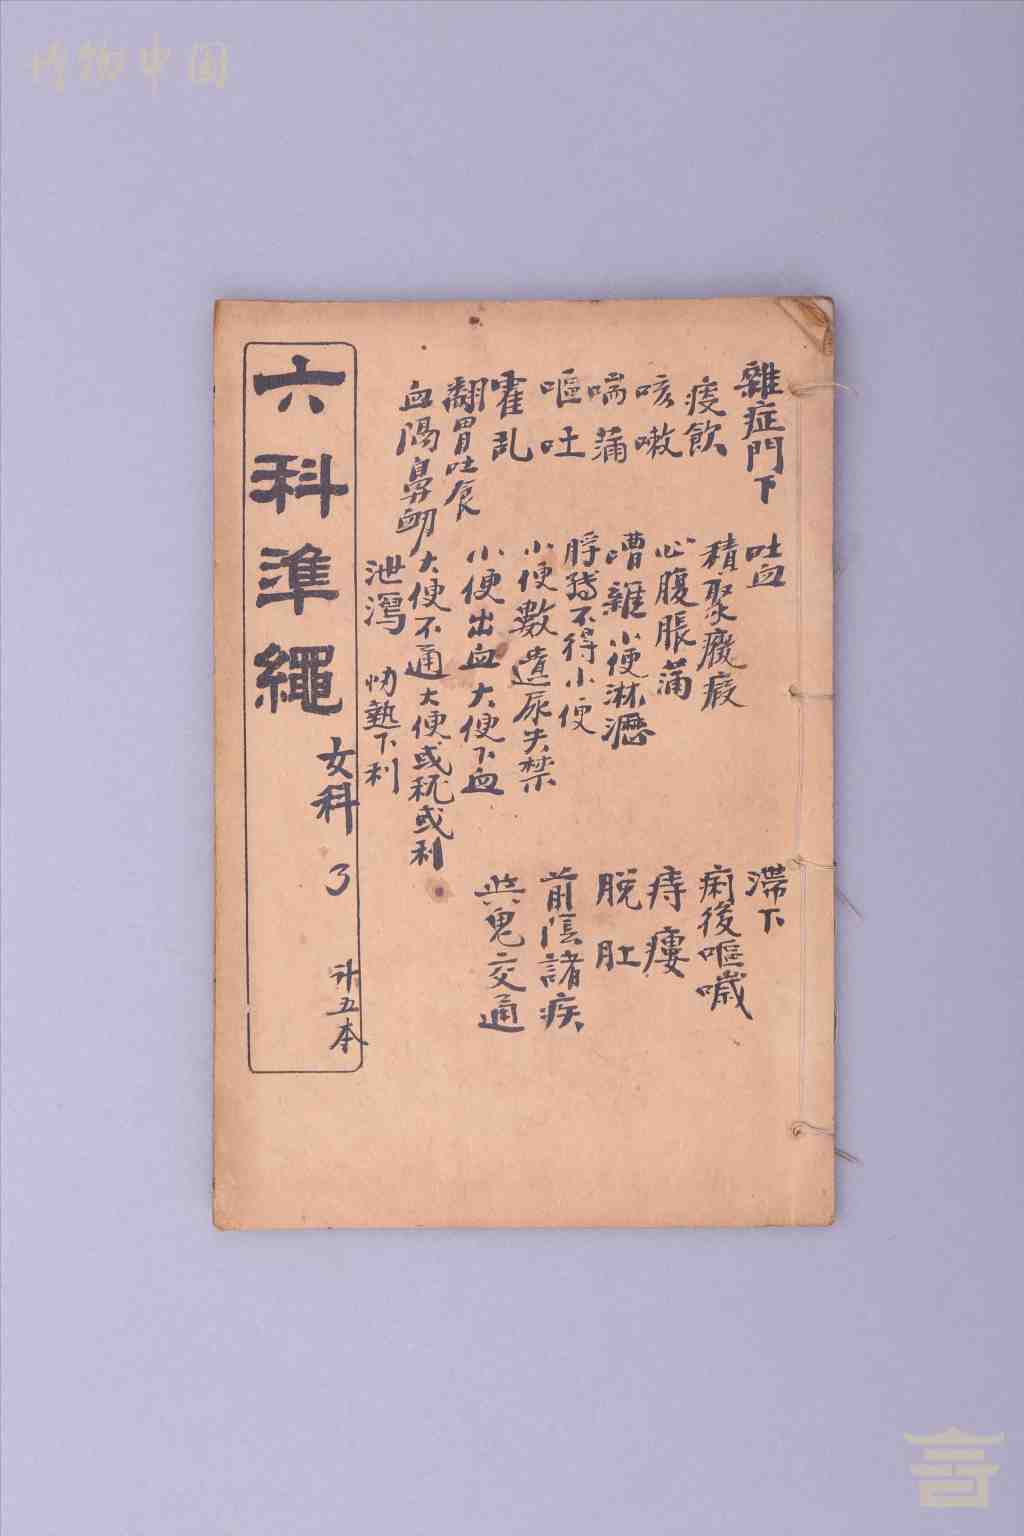 雜症門下
痰飲
咳嗽
喘蒲
嘔吐
霍乱
翻胃吐食
血
鼻衄
吐血
積聚癥瘕
心腹脹蒲
嘈雜 小便淋瀝
脬轉不得小便
小便數遺尿失禁
小便出血 大便下血
大便不通 大便或秘或利
泄瀉 協熱下利
滯下
痢後嘔噦
痔瘻
脫肛
前陰諸疾
與鬼交通
六科準繩
女科 3
计五本
博物中国